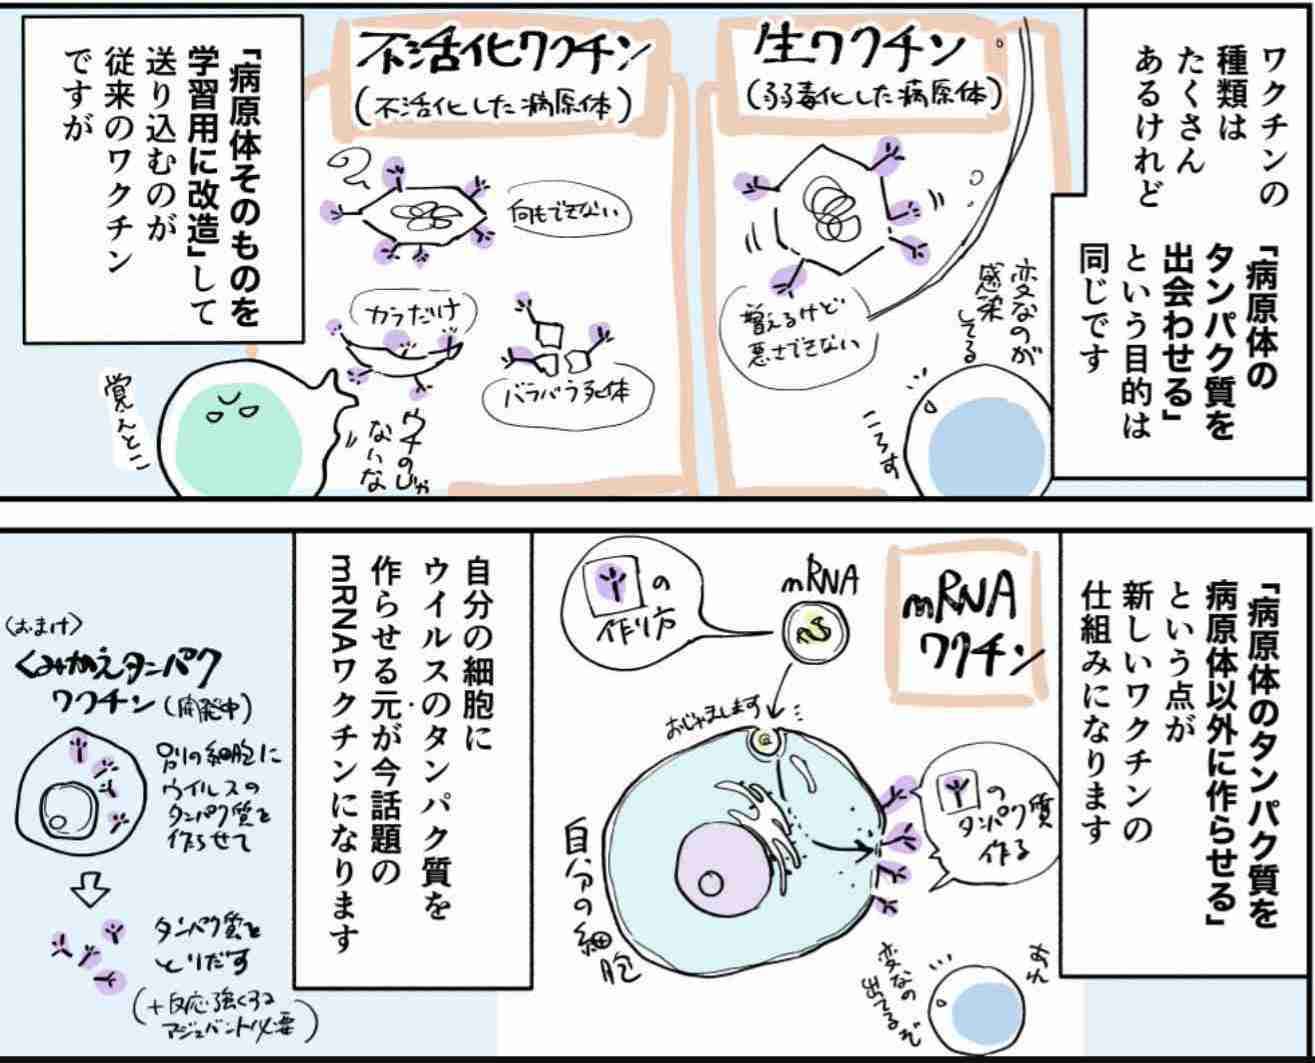 ワクチンの
種類は
たくさん
あるけれど
「病原体の
タンパク質を
出会わせる」
という目的は
同じです
生ワクチン
(弱毒化した病原体)
増えるけど
悪さできない
変なのが
感染
してる
ころす
不活化ワクチン
(不活化した病原体)
何もできない
カラだけ
バラバラ死体
ウチのじゃ
ないな
覚えとこ
「病原体そのものを
学習用に改造」して
送り込むのが
従来のワクチン
ですが
「病原体のタンパク質を
病原体以外に作らせる」
という点が
新しいワクチンの
仕組みになります
mRNA
ワクチン
mRNA
の
作り方
おじゃまします
の
タンパク質
作る
自分の細胞
あれ
変なの
出てるぞ
自分の細胞に
ウイルスのタンパク質を
作らせる元が今話題の
mRNAワクチンになります
〈おまけ〉
くみかえタンパク
ワクチン(開発中)
別の細胞に
ウイルスの
タンパク質を
作らせて
タンパク質を
とりだす
(+反応強くする
アジュバント必要)